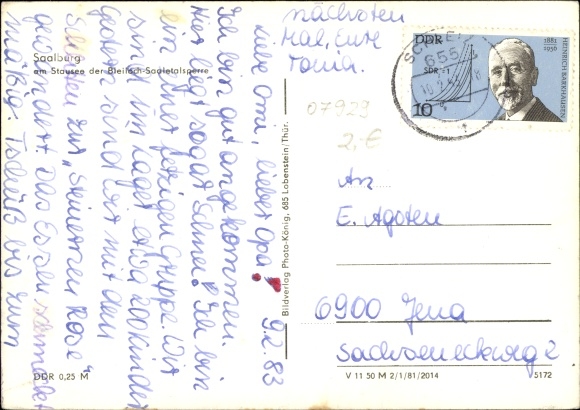 Saalburg
am Stausee der Bleiloch-Saaletalsperre
9.2.83
Liebe Omi, lieber Opa!
Ich bin gut angekommen.
Hier liegt sogar Schnee. Ich bin
in einer fetzigen Gruppe. Wir
sind im Lager etwa 200 Kinder
gestern sind wir mit dem
Schlitten zur "Steinernen Rose"
gewandert. Das Essen schmeckt
mäßig. Tschüß bis zum
nächsten
Mal, Eure
Tonia.
DDR 0,25 M
Bildverlag Photo-König, 685 Lobenstein/Thür.
DDR
1881
1956
HEINRICH BARKHAUSEN
SDR = 1
10
655
07929
2,-€
An
E. Agoten
6900 Jena
Sachseneckweg 2
V 11 50 M 2/1/81/2014
5172